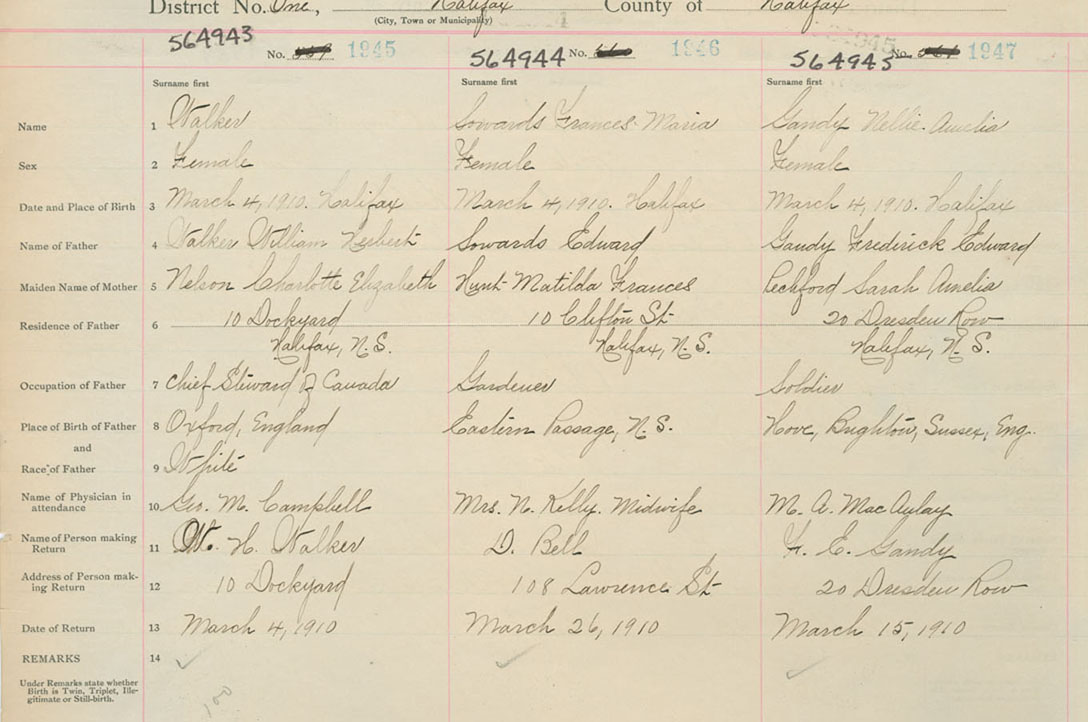 District No. One, Halifax County of Halifax
(City, Town or Municipality)
564943 No. 1945 564944 No. 1946 564945 No. 1947
Surname first Surname first Surname first
Name 1 Walker Sowards Frances Maria Gandy Nellie Amelia
Sex 2 Female Female Female
Date and Place of Birth 3 March 4, 1910. Halifax March 4, 1910. Halifax March 4, 1910. Halifax
Name of Father 4 Walker William Herbert Sowards Edward Gandy Frederick Edward
Maiden Name of Mother 5 Nelson Charlotte Elizabeth Hunt Matilda Frances Pechford Sarah Amelia
Residence of Father 6 10 Dockyard 10 Clifton St 20 Dresden Row
Halifax, N.S. Halifax, N.S. Halifax, N.S.
Occupation of Father 7 Chief Steward of Canada Gardener Soldier
Place of Birth of Father 8 Oxford, England Eastern Passage, N.S. Hove, Brighton, Sussex, Eng.
and
Race of Father 9 White
Name of Physician in attendance 10 Geo. M. Campbell Mrs. N. Kelly. Midwife M. A. MacAulay
Name of Person making Return 11 W. H. Walker D. Bell F. E. Gandy
Address of Person making Return 12 10 Dockyard 108 Lawrence St 20 Dresden Row
Date of Return 13 March 4, 1910 March 26, 1910 March 15, 1910
REMARKS 14
Under Remarks state whether
Birth is Twin, Triplet, Ille-
gitimate or Still-birth.
100